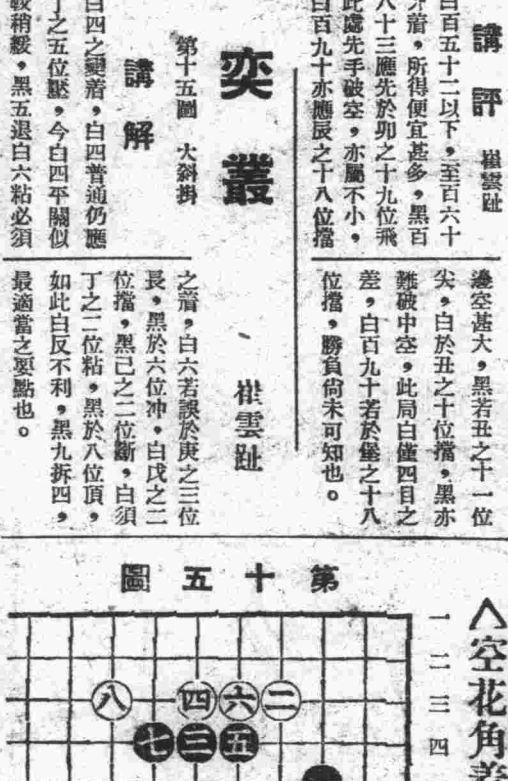 講評　崔雲趾
白百五十二以下，至百六十
着，所得便宜甚多，黑百
八十三應先於卯之十九位飛
此處先手破空，亦屬不小，
白百九十亦應辰之十八位擋
邊空甚大，黑若丑之十一位
尖，白於丑之十位擋，黑亦
難破中空，此局白僅四目之
差，白百九十若於之十八
位擋，勝負尙未可知也。
奕叢
崔雲趾
第十五圖　大斜掛
講解
白四之變着，白四普通仍應
丁之五位壓，今白四平關似
較稍緩，黑五退白六粘必須
之着，白六若誤於庚之三位
長，黑於六位冲，白戊之二
位擋，黑己之二位斷，白須
丁之二位粘，黑於八位頂，
如此白反不利，黑九拆四，
最適當之要點也。
第十五圖
一
二
三
四
八 四 六 二
七 三 五
空花角